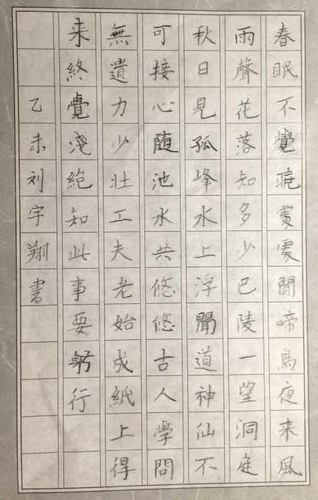 春眠不覺曉處處聞啼鳥夜来風
雨聲花落知多少巴陵一望洞庭
秋日見孤峰水上浮聞道神仙不
可接心随池水共悠悠古人學問
無遺力少壯工夫老始成紙上得
来終覺淺絕知此事要躬行
乙未刘宇翔書